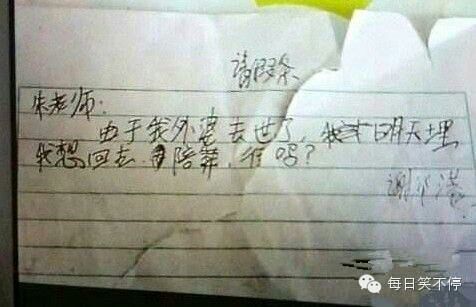 请假条
朱老师:
由于我外婆去世了,我 明天埋
我想回去 陪葬,行吗?
谢
每日笑不停